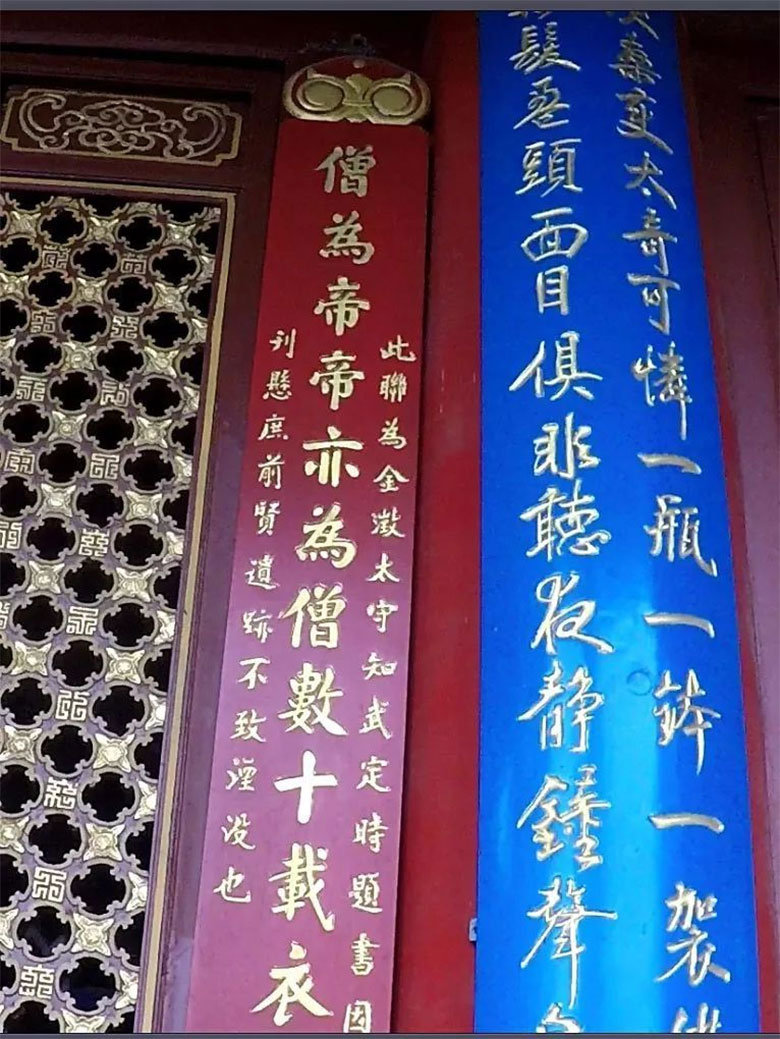 桑变太奇可憐一瓶一鉢一袈
髮盈頭面目俱非聽夜静鐘聲
此聯為金澂太守知武定時題書因
僧為帝帝亦為僧數十載衣
刊懸庶前賢遺跡不致湮没也